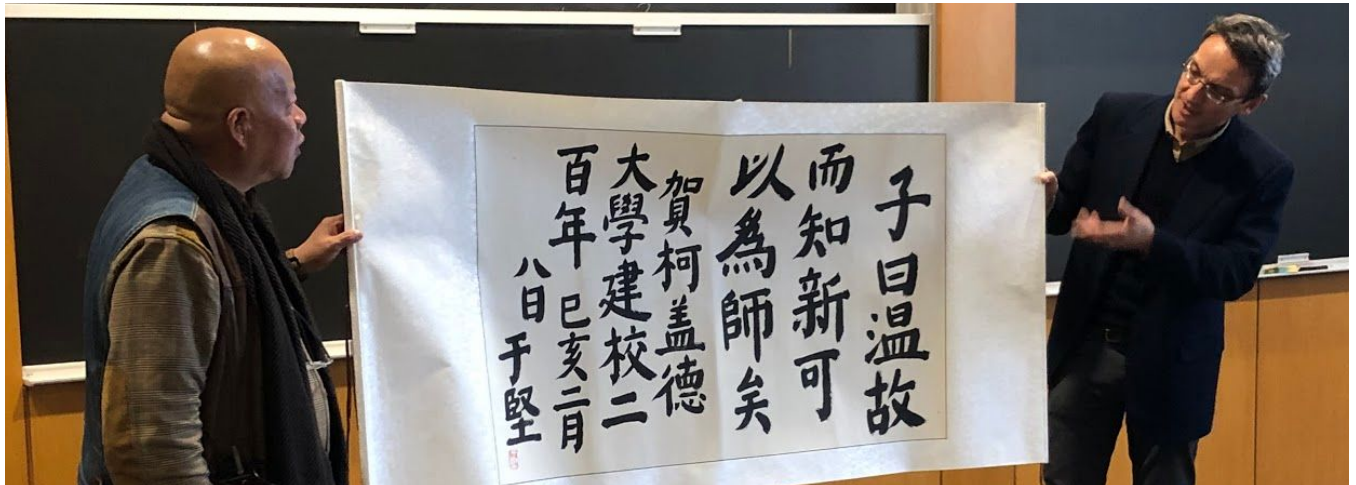 子曰温故
而知新可
以為師矣
賀柯盖德
大學建校二
百年 已亥二月
八日 于堅